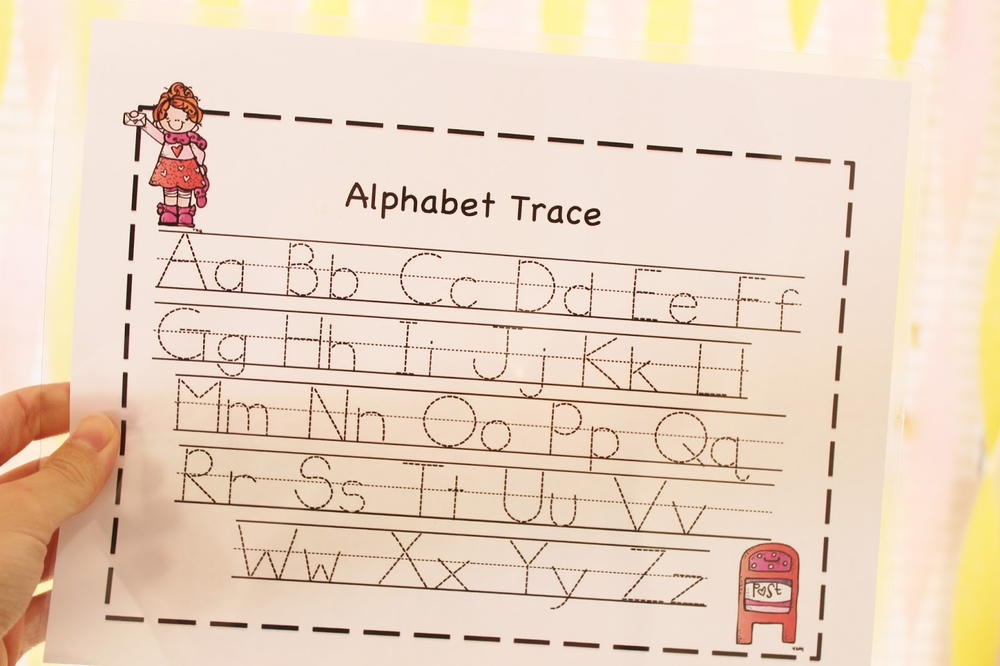 Alphabet Trace
Aa Bb Cc Dd Ee Ff
Gg Hh Ii Jj Kk Ll
Mm Nn Oo Pp Qq
Rr Ss Tt Uu Vv
Ww Xx Yy Zz
Post